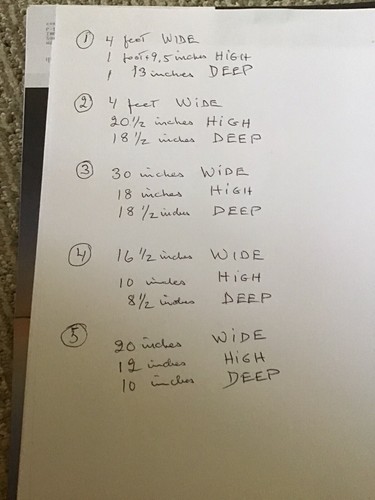 ① 4 feet WIDE
1 foot+9,5 inches HIGH
1 13 inches DEEP
② 4 feet WiDE
20 1/2 inches HiGH
18 1/2 inches DEEP
③ 30 inches WiDE
18 inches HiGH
18 1/2 inches DEEP
④ 16 1/2 inches WiDE
10 inches HiGH
8 1/2 inches DEEP
⑤ 20 inches WiDE
12 inches HiGH
10 inches DEEP